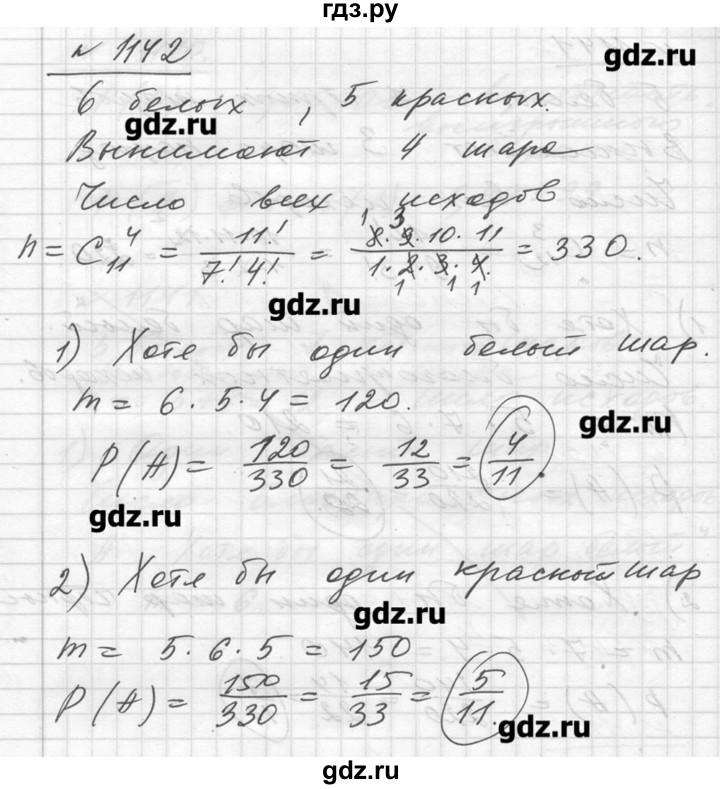 гдз.ру
№ 1142
gdz.ru
6 белых, 5 красных.
gdz.ru
Вынимают 4 шара
Число всех исходов
n = C₁₁⁴ = 11!/(7! 4!) = (8·9·10·11)/(1·2·3·4) = 330.
gdz.ru
1) Хотя бы один белый шар.
m = 6·5·4 = 120.
gdz.ru
P(A) = 120/330 = 12/33 = 4/11.
gdz.ru
2) Хотя бы один красный шар
gdz.ru
m = 5·6·5 = 150
P(A) = 150/330 = 15/33 = 5/11.
gdz.ru
gdz.ru